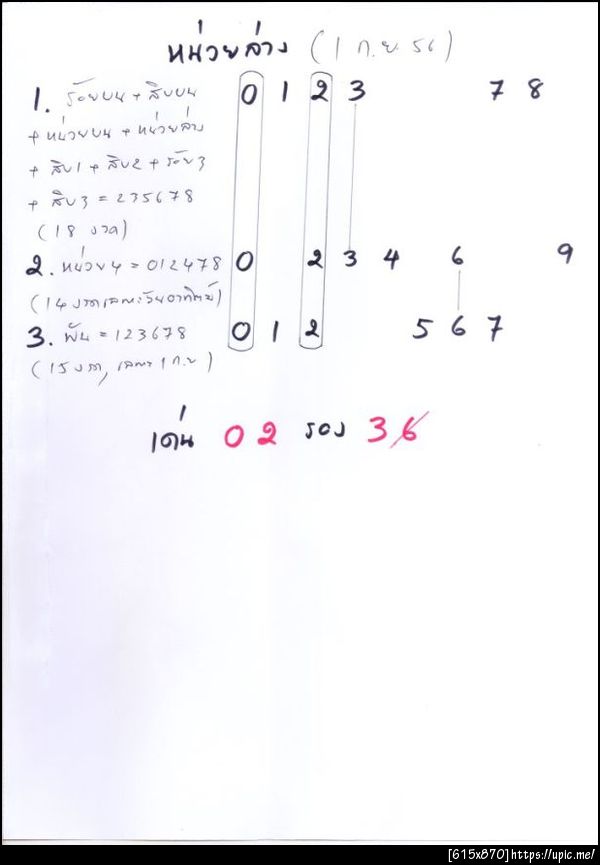 หน่วยล่าง (1 ก.ย. 56)
1. ร้อยบน + สิบบน 0 1 2 3 7 8
+ หน่วยบน + หน่วยล่าง
+ สิบ1 + สิบ2 + ร้อย3
+ สิบ3 = 235678
(18 งวด)
2. หน่วย4 = 012478 0 2 3 4 6 9
(14 งวดเฉพาะวันอาทิตย์)
3. พัน = 123678 0 1 2 5 6 7
(15 งวด, เฉพาะ 1 ก.ย)
เด่น 02 รอง 36
[615x870]https://upic.me/